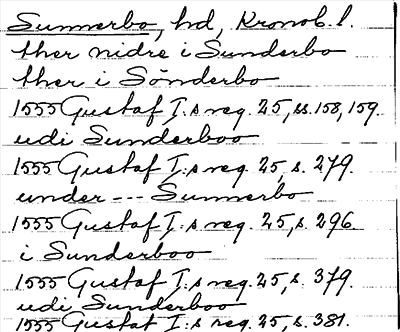 Sunnerbo, hd, Kronob. l.
ther nidre i Sunderbo
ther i Sönderbo
1555 Gustaf I:s reg. 25, ss. 158, 159.
udi Sunderboo
1555 Gustaf I:s reg. 25, s. 279.
under --- Sunnerbo
1555 Gustaf I:s reg. 25, s. 296.
i Sunderboo
1555 Gustaf I:s reg. 25, s. 379.
udi Sunderboo
1555 Gustaf I:s reg. 25, s. 381.